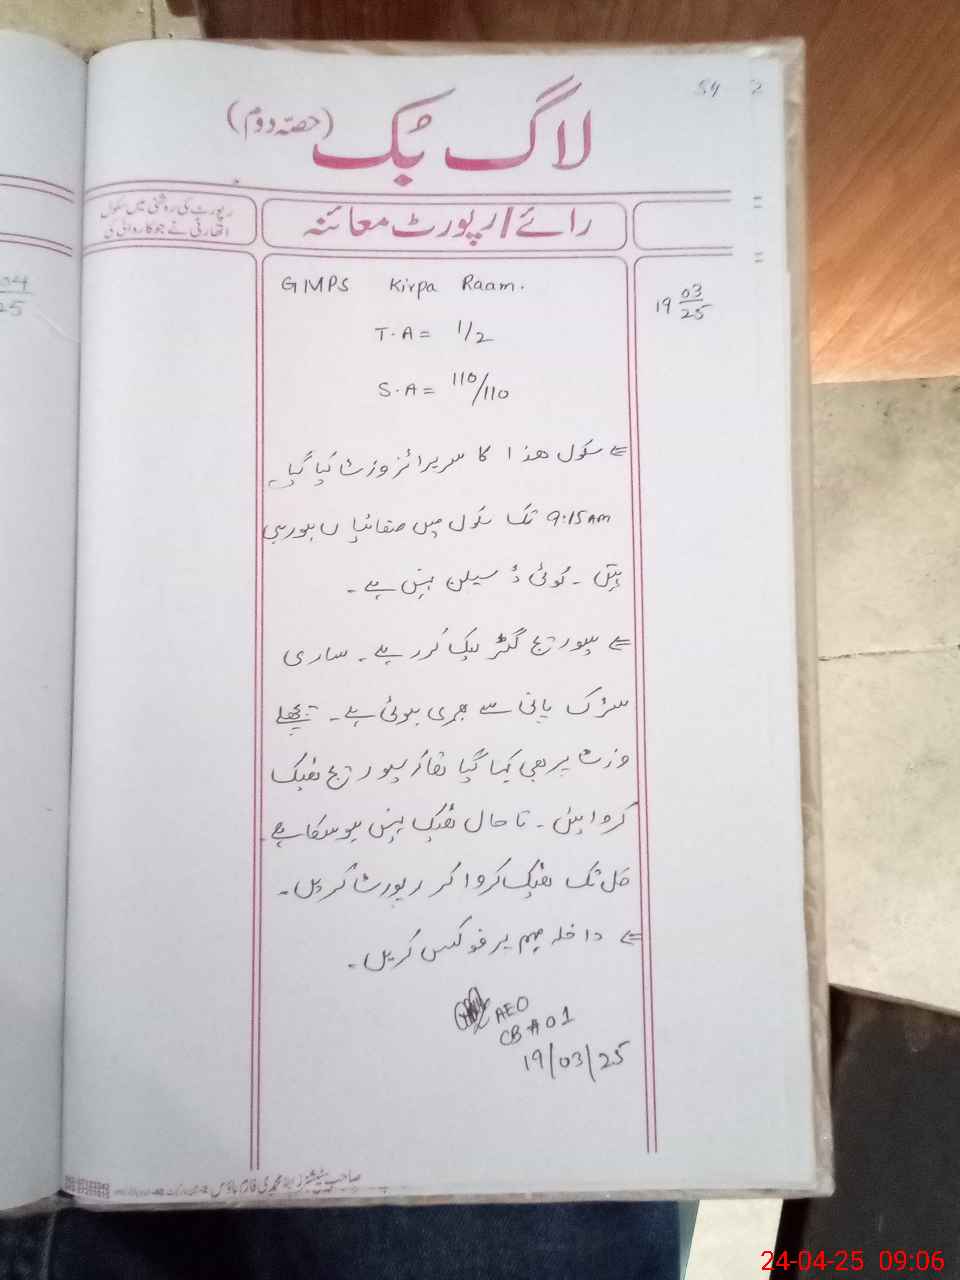 54
لاگ بُک (حصّہ دوم)
رائے/رپورٹ معائنہ
رپورٹ کی روشنی میں سکول
اتھارٹی نے جو کاروائی کی
04
25
19 03/25
GMPS Kirpa Raam.
T.A = 1/2
S.A = 110/110
⇐ سکول ھذا کا سرپرائز وزٹ کیا گیا۔
9:15 AM تک سکول میں صفائیاں ہو رہی
ہیں۔ کوئی ڈسپلن نہیں ہے۔
⇐ سیوریج گٹر لیک کر رہے۔ ساری
سڑک پانی سے بھری ہوئی ہے۔ پچھلے
وزٹ پر بھی کہا گیا تھا کہ سیوریج ٹھیک
کروائیں۔ تاحال ٹھیک نہیں ہو سکا ہے۔
کل تک ٹھیک کروا کر رپورٹ کریں۔
⇐ داخلہ مہم پر فوکس کریں۔
AEO
CB # 01
19/03/25
24-04-25 09:06